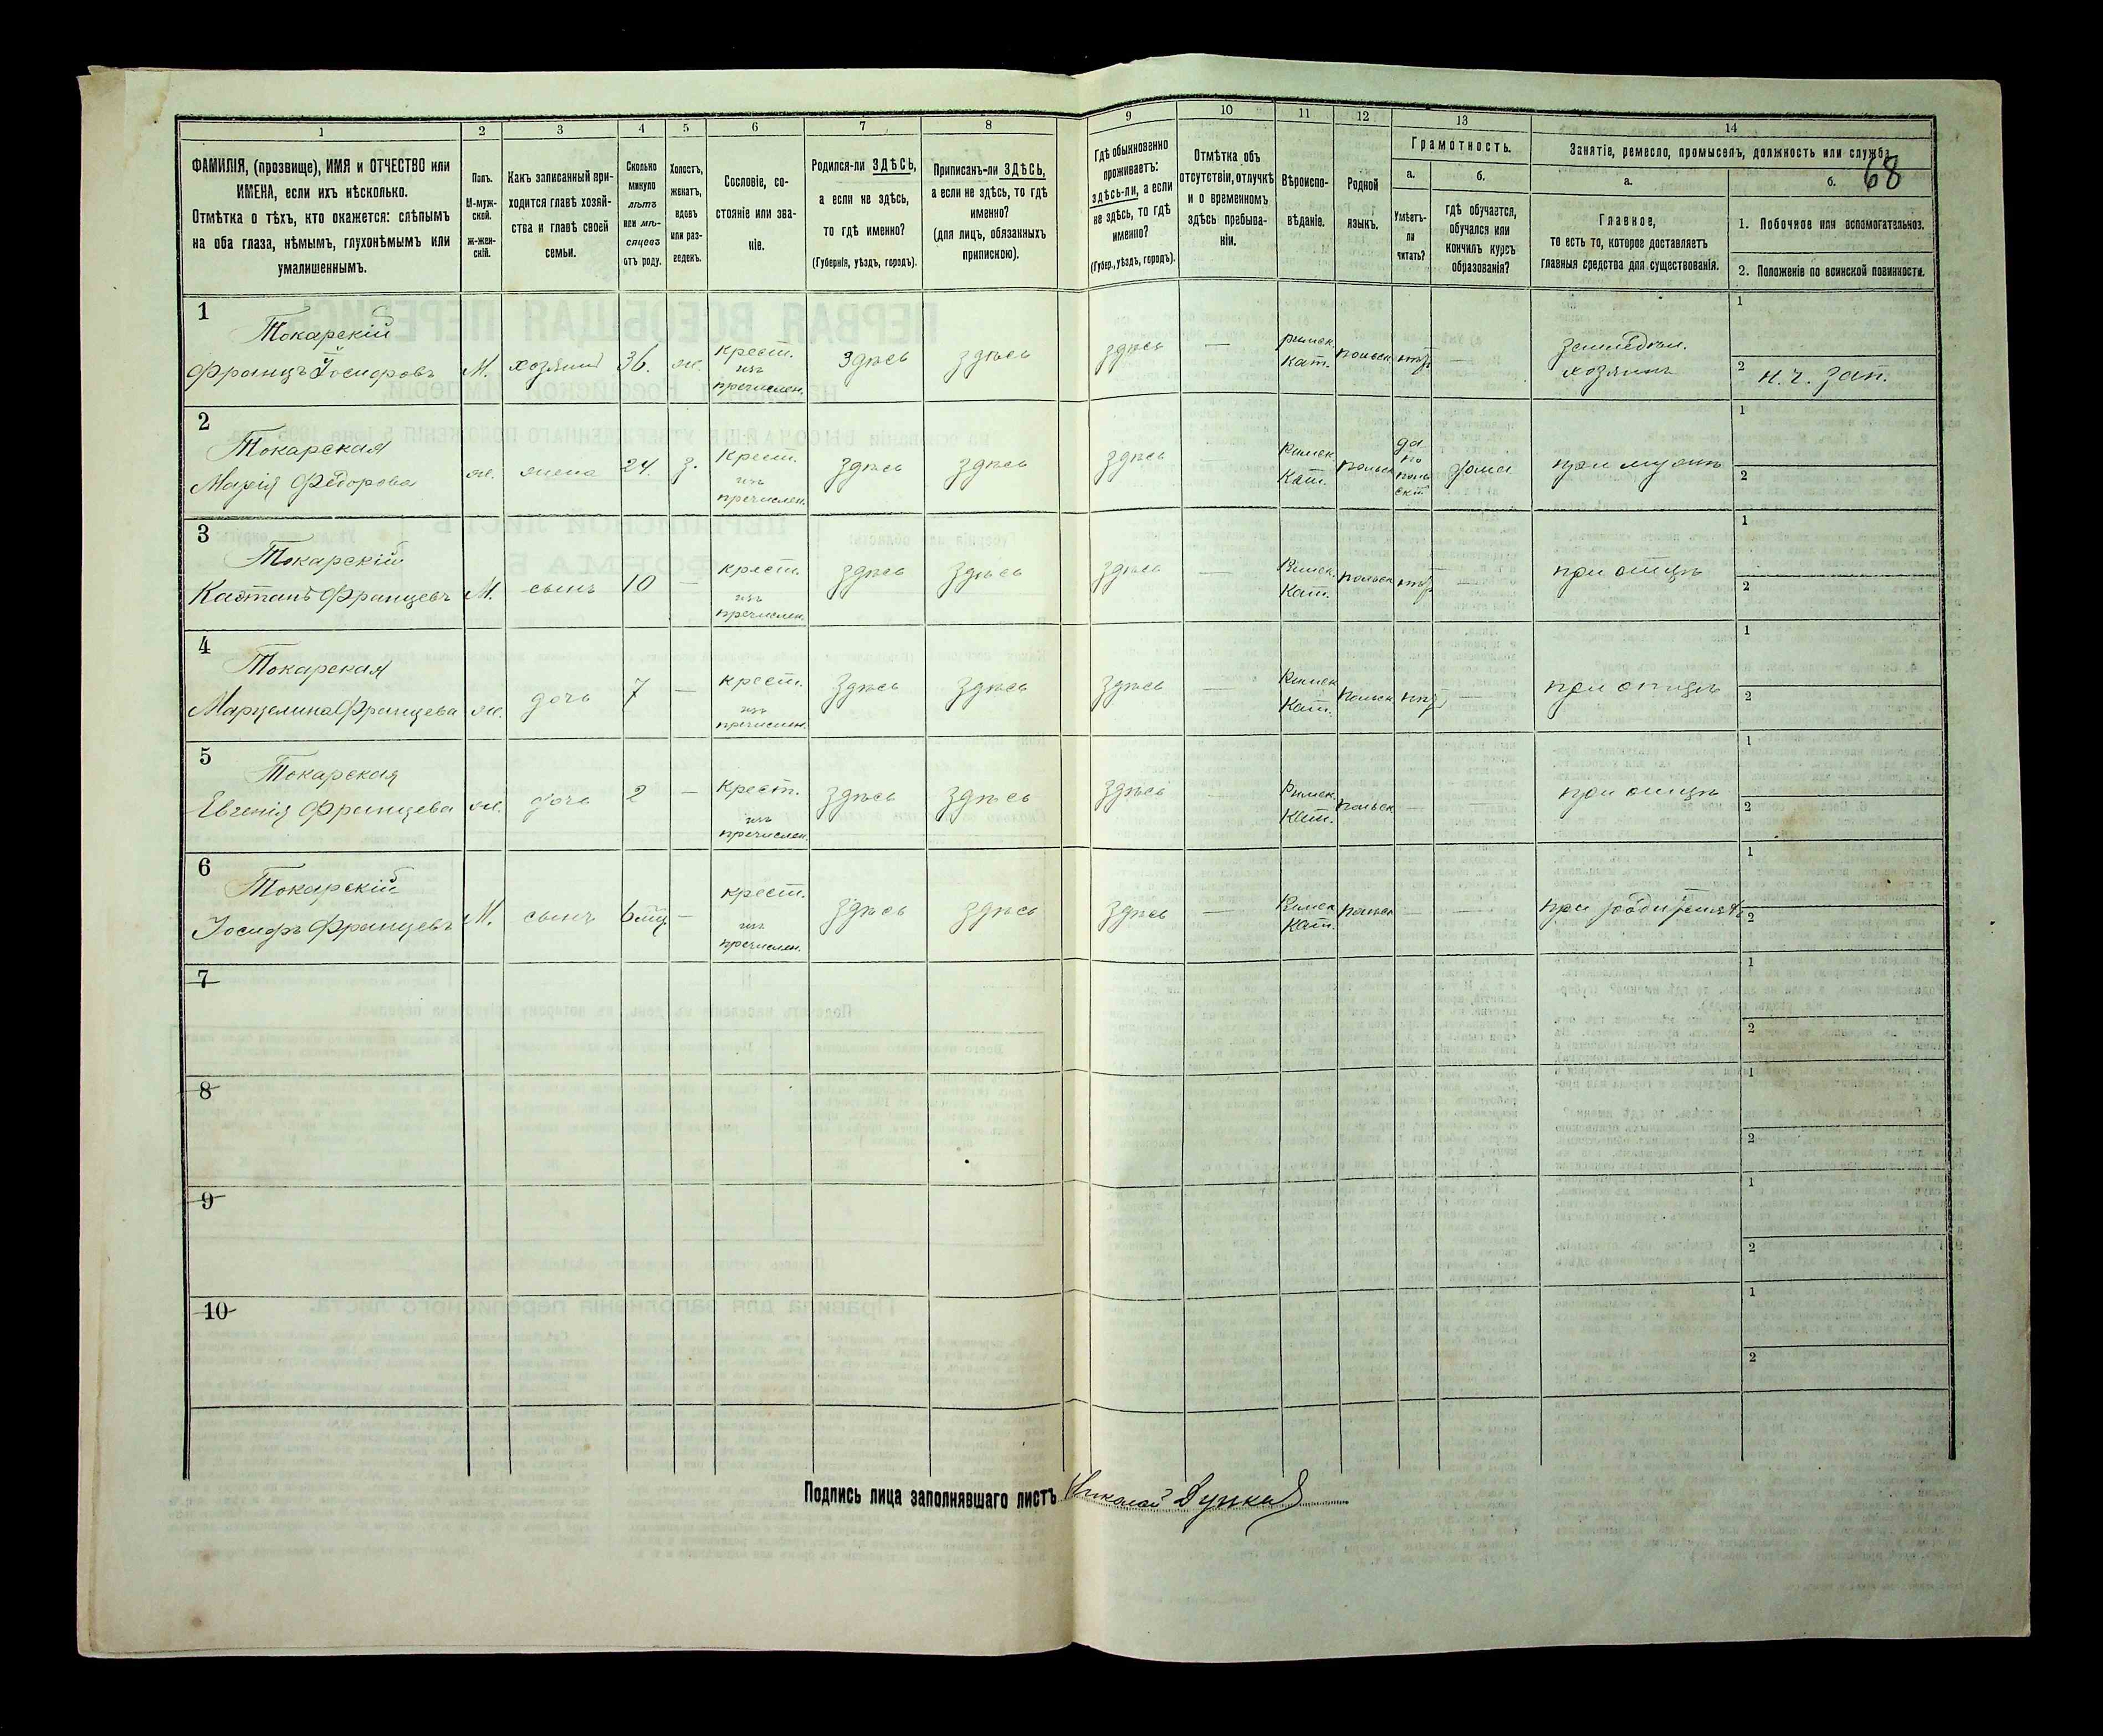 1 2 3 4 5 6 7 8 9 10 11 12 13 14
ФАМИЛІЯ, (прозвище), ИМЯ и ОТЧЕСТВО или
ИМЕНА, если ихъ нѣсколько.
Отмѣтка о тѣхъ, кто окажется: слѣпымъ
на оба глаза, нѣмымъ, глухонѣмымъ или
умалишеннымъ.
Полъ.
М-муж-
ской.
ж-жен-
скій.
Какъ записанный при-
ходится главѣ хозяй-
ства и главѣ своей
семьи.
Сколько
минуло
лѣтъ
или мѣ-
сяцевъ
отъ роду.
Холостъ,
женатъ,
вдовъ
или раз-
веденъ.
Сословіе, со-
стояніе или зва-
ніе.
Родился-ли ЗДѢСЬ,
а если не здѣсь,
то гдѣ именно?
(Губернія, уѣздъ, городъ).
Приписанъ-ли ЗДѢСЬ,
а если не здѣсь, то гдѣ
именно?
(для лицъ, обязанныхъ
припискою).
Гдѣ обыкновенно
проживаетъ:
здѣсь-ли, а если
не здѣсь, то гдѣ
именно?
(Губер., уѣздъ, городъ).
Отмѣтка объ
отсутствіи, отлучкѣ
и о временномъ
здѣсь пребыва-
ніи.
Вѣроиспо-
вѣданіе.
Родной
языкъ.
Грамотность.
а.
Умѣетъ-
ли
читать?
б.
гдѣ обучается,
обучался или
кончилъ курсъ
образованія?
Занятіе, ремесло, промыселъ, должность или служба.
68
а.
Главное,
то есть то, которое доставляетъ
главныя средства для существованія.
б.
1. Побочное или вспомогательное.
2. Положеніе по воинской повинности.
1
Токарскій
Францъ Іосифовъ М. хозяинъ 36. ж. крест. изъ пречислен. Здѣсь здѣсь здѣсь — римск. Кат. польск нѣт — земледѣл. хозяинъ
1
2 н. ч. зап.
2
Токарская
Марія Федорова ж. жена 24. з. Крест. изъ пречислен. здѣсь здѣсь здѣсь — Римск. Кат. польск да по польски дома при мужѣ
1
2
3
Токарскій
Каэтанъ Францевъ М. сынъ 10 — крест. изъ пречислен. здѣсь здѣсь здѣсь — Римск. Кат. польск нѣт — при отцѣ
1
2
4
Токарская
Марцелина Францева ж. дочь 7 — крест. изъ пречислен. здѣсь здѣсь здѣсь — Римск Кат. польск нѣт — при отцѣ
1
2
5
Токарская
Евгенія Францева ж. дочь 2 — Крест. изъ пречислен. здѣсь здѣсь здѣсь — Римск. Кат. польск — — при отцѣ
1
2
6
Токарскій
Іосифъ Францевъ М. сынъ 6 мц. — крест. изъ пречислен. здѣсь здѣсь здѣсь — Римск Кат. польск — — при родителяхъ
1
2
7
1
2
8
1
2
9
1
2
10
1
2
Подпись лица заполнявшаго листъ Николай